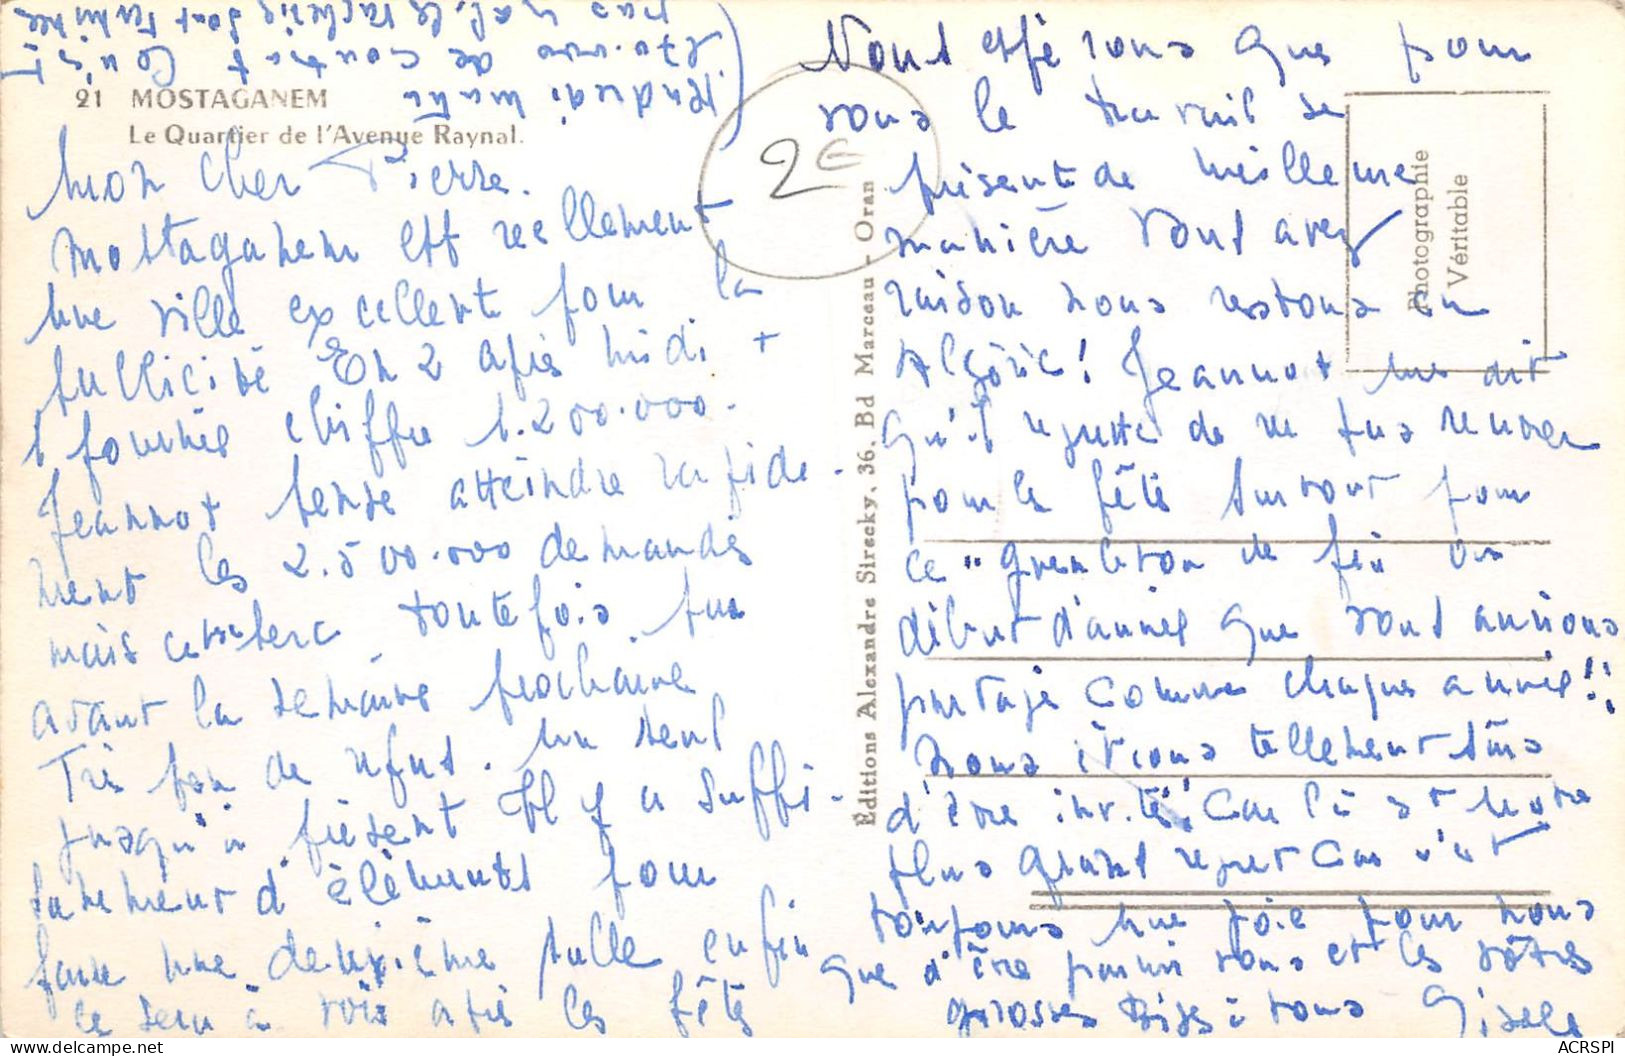 21 MOSTAGANEM
Le Quartier de l'Avenue Raynal.
Mon Cher Pierre.
Mostaganem est reellement
une ville excellente pour la
publicité En 2 après midi +
1 journée chiffre 1.200.000.
Jeannot pense atteindre rapide-
ment les 2.500.000 demandés
mais ce sera toutefois pas
avant la semaine prochaine
Très peu de refus. Un seul
jusqu'à présent Il y a suffi-
samment d'éléments pour
faire une deuxième bulle enfin
ce sera à voir après les fêtes
Nous espérons que pour
vous le travail se
présente de meilleure
manière Vous avez
raison nous restons en
Algérie! Jeannot me dit
qu'il regrette de ne pas rentrer
pour les fêtes surtout pour
ce " gueuleton de fin ou
début d'année que vous aurions
partagé comme chaque année!!
Nous étions tellement sûrs
d'être invités, Car là est notre
plus grand regret Car c'est
toujours une joie pour nous
que d'être parmi vous et les vôtres
grosses bises à tous Gisele
(Vendredi matin
de contrat
pas mal, les sont terminées
2E
Éditions Alexandre Sirecky, 36, Bd Marceau - Oran
Photographie
Véritable
ACRSPI